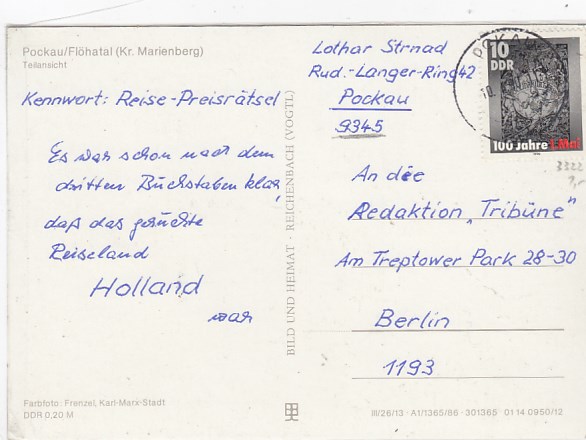 Pockau/Flöhatal (Kr. Marienberg)
Teilansicht
Kennwort: Reise-Preisrätsel
Es war schon nach dem
dritten Buchstaben klar,
daß das gesuchte
Reiseland
Holland
war
Farbfoto: Frenzel, Karl-Marx-Stadt
DDR 0,20 M
BILD UND HEIMAT · REICHENBACH (VOGTL)
Lothar Strnad
Rud.-Langer-Ring 42
Pockau
9345
POCKAU
10
DDR
100 Jahre 1. Mai
3322
1,-
An die
Redaktion „Tribüne"
Am Treptower Park 28-30
Berlin
1193
III/26/13 · A1/1365/86 · 301365 01 14 0950/12